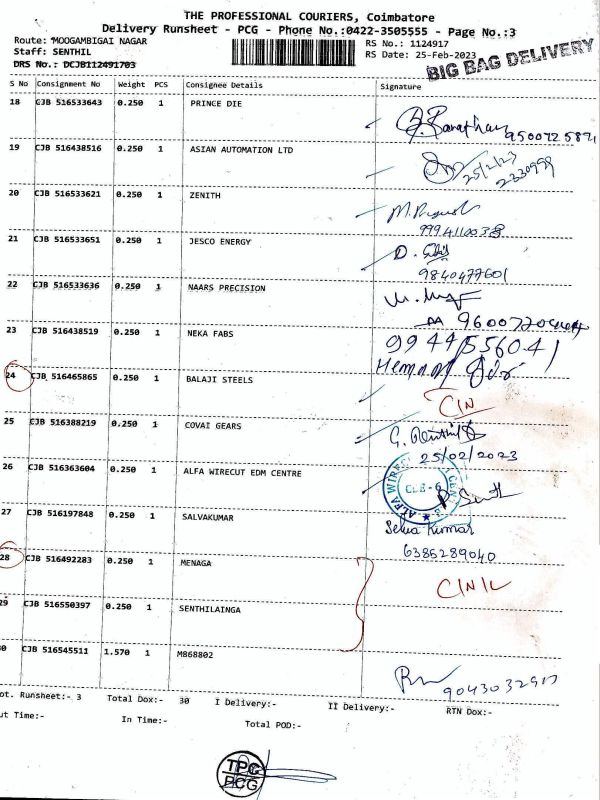 THE PROFESSIONAL COURIERS, Coimbatore
Delivery Runsheet - PCG - Phone No.:0422-3505555 - Page No.:3
Route: MOOGAMBIGAI NAGAR
RS No.: 1124917
Staff: SENTHIL
RS Date: 25-Feb-2023
DRS No.: DCJB112491703
BIG BAG DELIVERY
S No Consignment No Weight PCS Consignee Details Signature
18 CJB 516533643 0.250 1 PRINCE DIE
9500725891
19 CJB 516438516 0.250 1 ASIAN AUTOMATION LTD
25/2/23
20 CJB 516533621 0.250 1 ZENITH
21 CJB 516533651 0.250 1 JESCO ENERGY
9840477601
22 CJB 516533636 0.250 1 NAARS PRECISION
23 CJB 516438519 0.250 1 NEKA FABS
24 CJB 516465865 0.250 1 BALAJI STEELS
CIN
25 CJB 516388219 0.250 1 COVAI GEARS
25/02/2023
26 CJB 516363604 0.250 1 ALFA WIRECUT EDM CENTRE
CBE-6
27 CJB 516197848 0.250 1 SALVAKUMAR
Selva Kumar
6385289040
28 CJB 516492283 0.250 1 MENAGA
29 CJB 516550397 0.250 1 SENTHILAINGA
CJB 516545511 1.570 1 M868802
Runsheet:- 3 Total Dox:- 30 I Delivery:- II Delivery:- RTN Dox:-
Time:- In Time:- Total POD:-
TPC
PCG